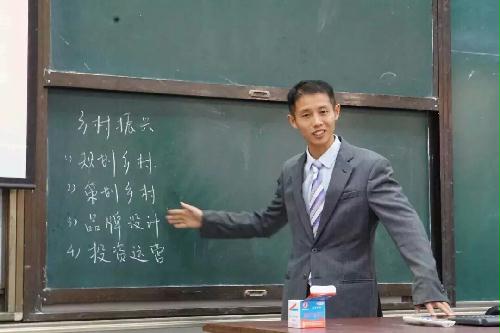 乡村振兴
1）规划乡村
2）策划乡村
3）品牌设计
4）投资运营